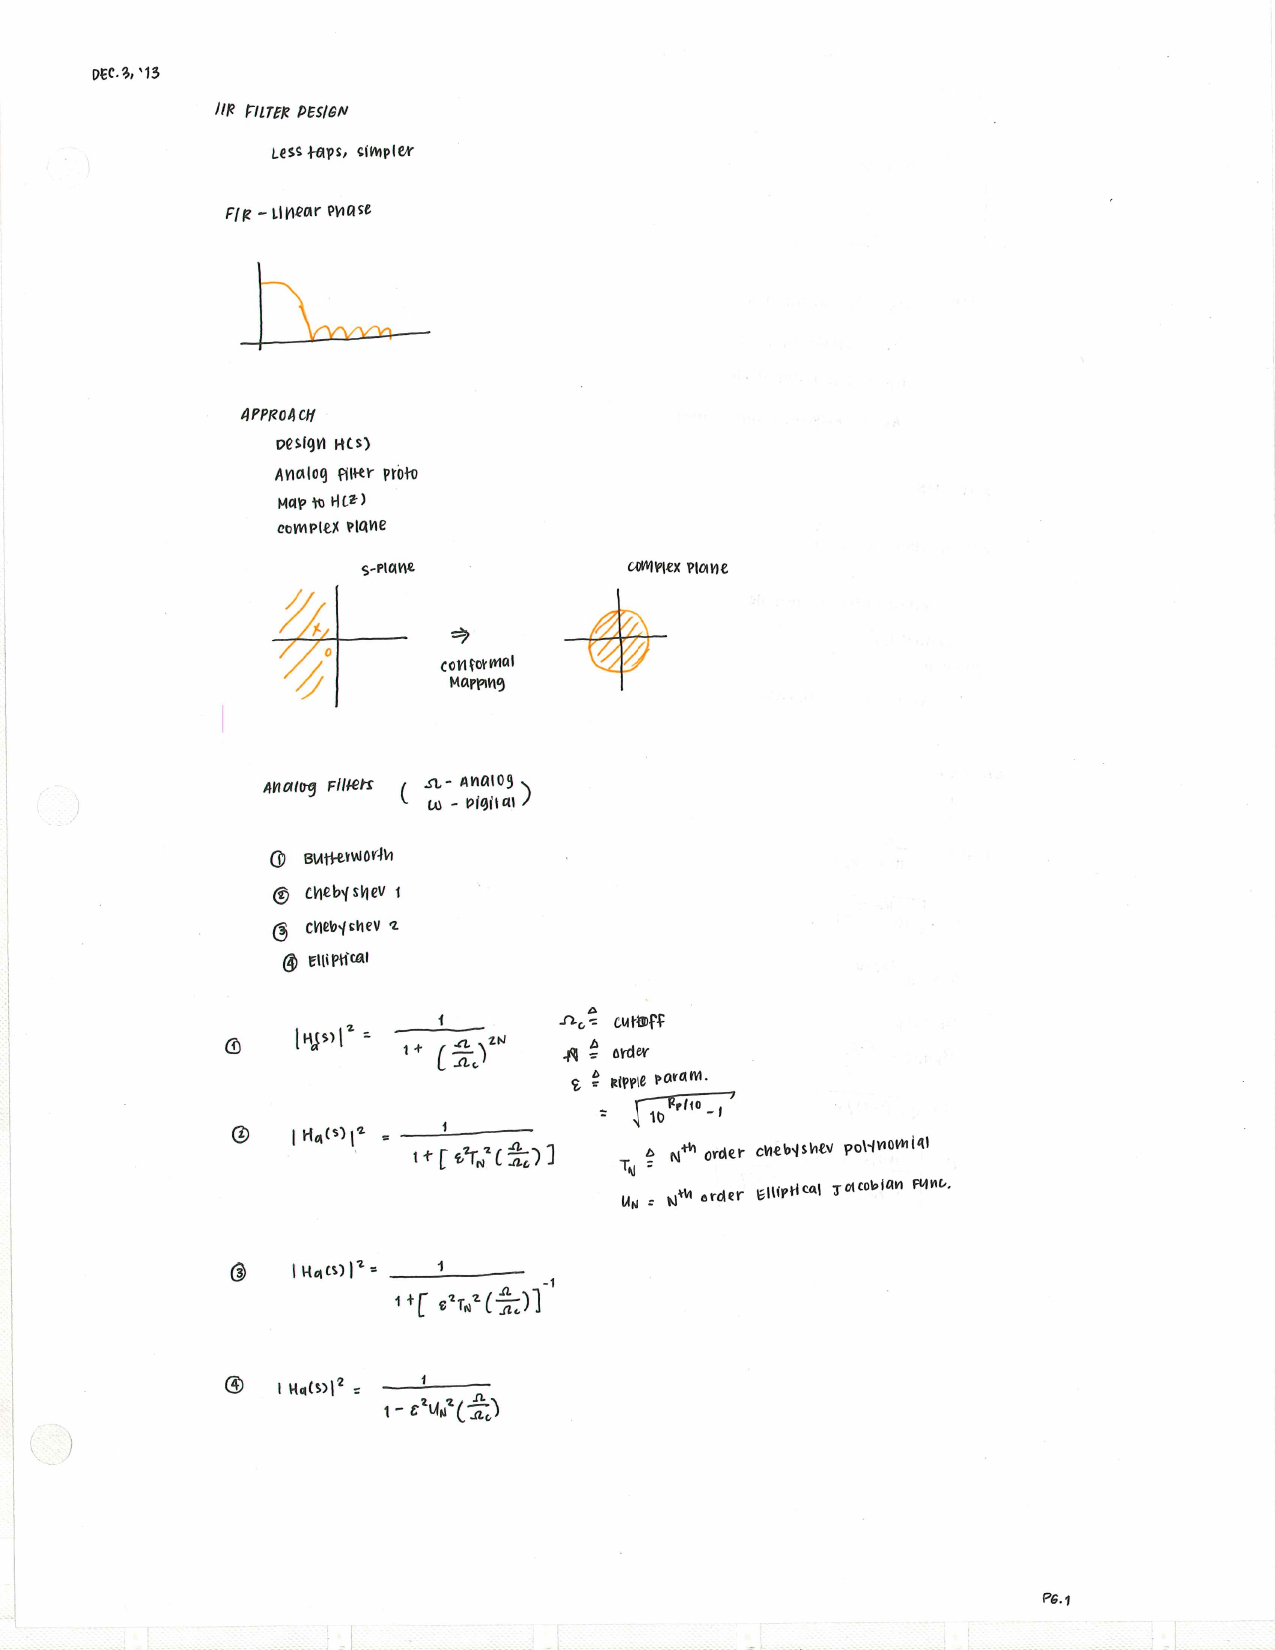 DEC. 3, '13
IIR FILTER DESIGN
Less taps, simpler
FIR - Linear phase
APPROACH
Design H(s)
Analog filter proto
Map to H(z)
complex plane
s-plane
complex plane
⇒
conformal
Mapping
Analog Filters ( Ω - Analog
ω - Digital )
① Butterworth
② Chebyshev 1
③ Chebyshev 2
④ Elliptical
① |Ha(s)|² = 1 / (1 + (Ω/Ωc)^2N)
Ωc ≜ cutoff
N ≜ order
ε ≜ Ripple param.
= √(10^(Rp/10) - 1)
② |Ha(s)|² = 1 / (1 + [ε²TN²(Ω/Ωc)])
TN ≜ Nth order chebyshev polynomial
UN = Nth order Elliptical Jacobian Func.
③ |Ha(s)|² = 1 / (1 + [ε²TN²(Ω/Ωc)]^-1)
④ |Ha(s)|² = 1 / (1 - ε²UN²(Ω/Ωc))
PG. 1